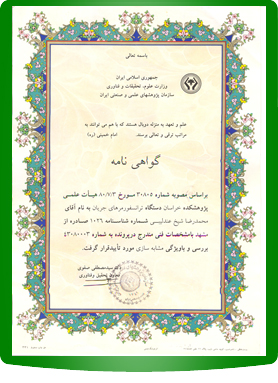 باسمه تعالی
جمهوری اسلامی ایران
وزارت علوم، تحقیقات و فناوری
سازمان پژوهشهای علمی و صنعتی ایران
علم و تعهد به منزله دوبال هستند که با هم می توانند به
مراتب ترقی و تعالی برسند. امام خمینی (ره)
گواهی نامه
براساس مصوبه شماره ۳۰۸۰۵ مورخ ۸۰/۷/۳ هیأت علمی
پژوهشکده خراسان دستگاه ترانسفورمرهای جریان به نام آقای
محمدرضا شیخ عندلیبی شماره شناسنامه ۱۰۲۶ صادره از
مشهد بامشخصات فنی مندرج درپرونده به شماره ۴۳۰۸۱۰۰۰۳
بررسی و باویژگی مشابه سازی مورد تأیید قرار گرفت.
دکتر سیدمصطفی صفوی